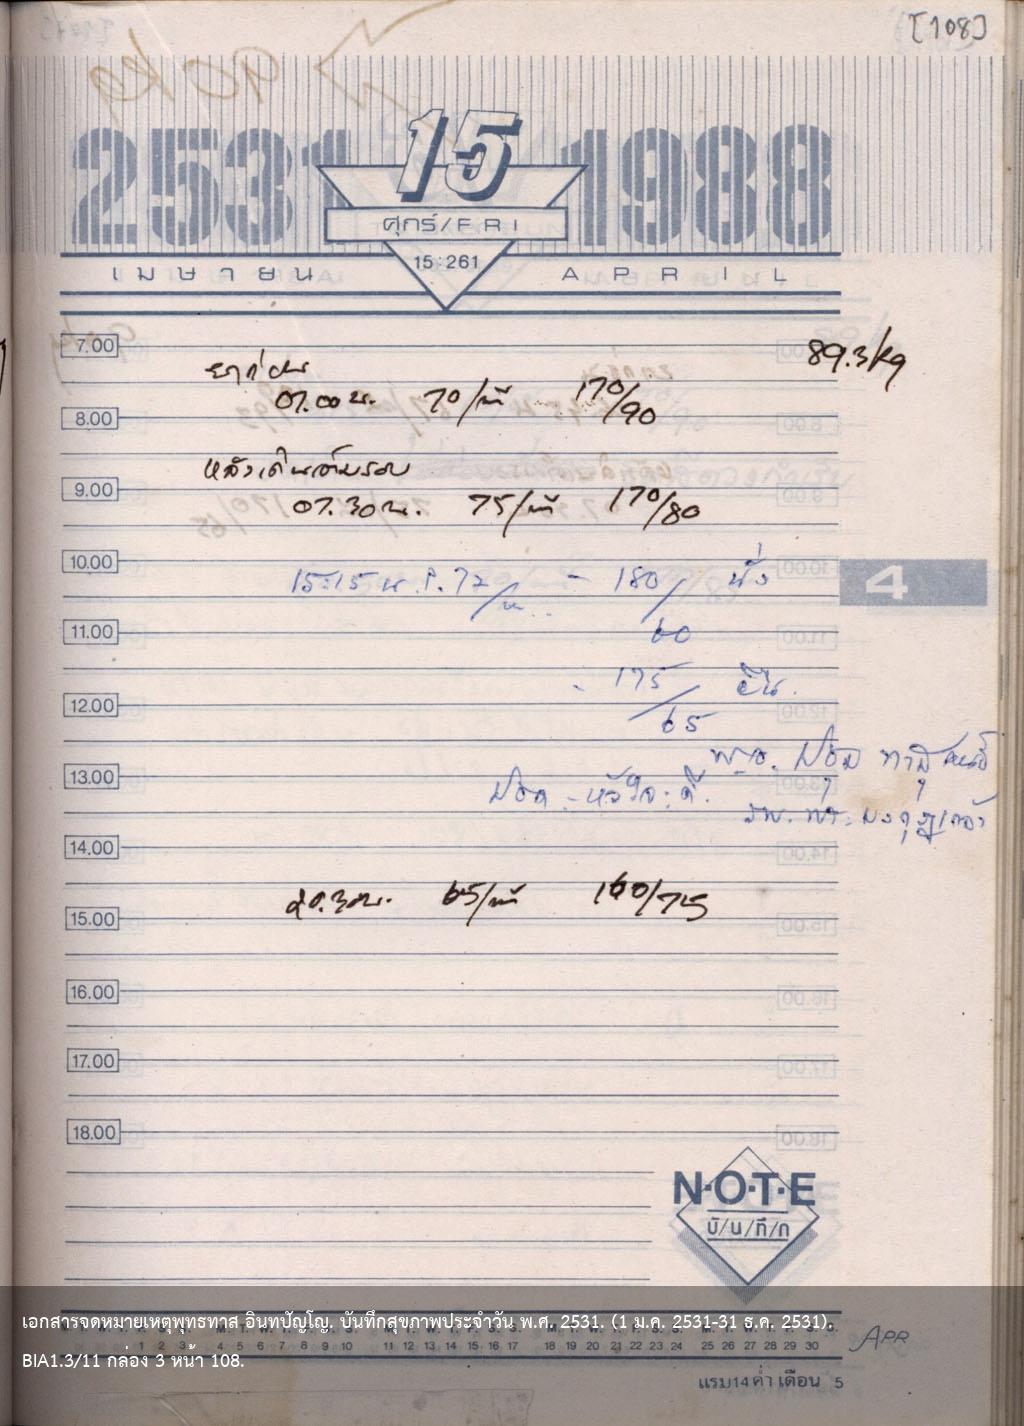 [108]
2531 15 1988
ศุกร์/FRI
15:261
เมษายน APRIL
7.00
89.3 kg
07.00 น. 70/นที 170/90
8.00
หลังเดินสามรอบ
9.00
07.30 น. 75/นที 170/80
10.00
15:15 น. P. 72/น. - 180/60 นั่ง
4
11.00
- 175/65 ยืน.
12.00
พ.อ.
13.00
ปอด - หัวใจ : ดี.
รพ. พระมงกุฎเกล้า
14.00
65/นที 160/75
15.00
16.00
17.00
18.00
N·O·T·E
บั/น/ทึ/ก
เอกสารจดหมายเหตุพุทธทาส อินทปัญโญ. บันทึกสุขภาพประจำวัน พ.ศ. 2531. (1 ม.ค. 2531-31 ธ.ค. 2531).
4 5 6 7 8 9 10 11 12 13 14 15 16 17 18 19 20 21 22 23 24 25 26 27 28 29 30
APR
BIA1.3/11 กล่อง 3 หน้า 108.
แรม 14 ค่ำ เดือน 5